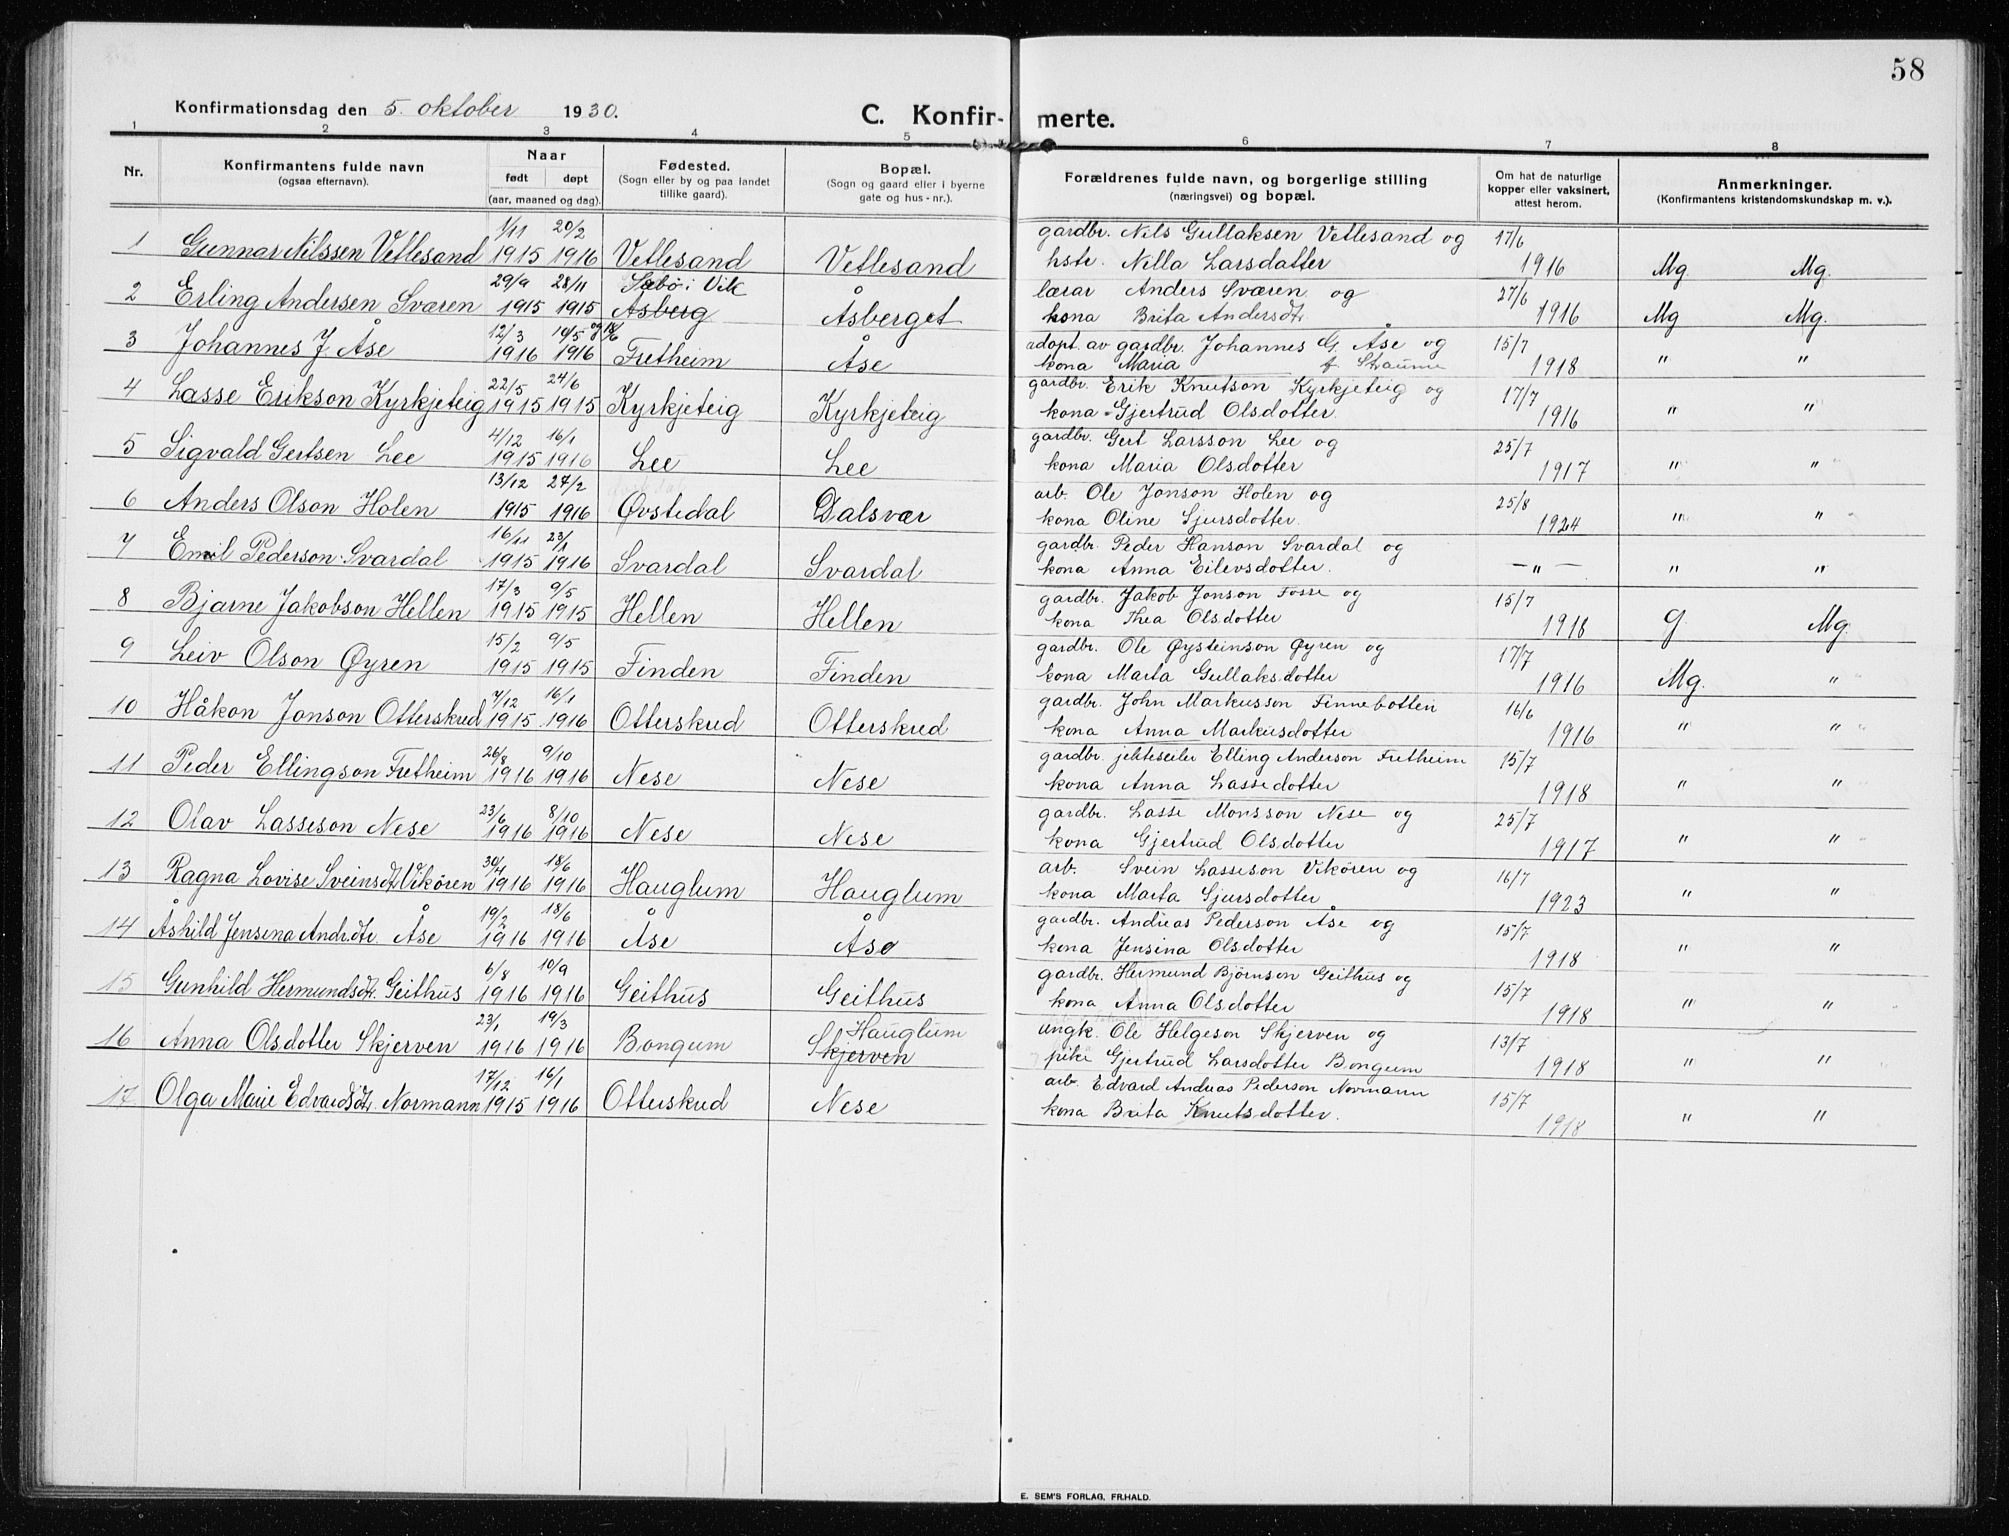 58
Konfirmationsdag den 5. oktober 1930.
C. Konfir- merte.
1 2 3 4 5 6 7 8
Nr.
Konfirmantens fulde navn
(ogsaa efternavn).
Naar
født døpt
(aar, maaned og dag).
Fødested.
(Sogn eller by og paa landet
tillike gaard).
Bopæl.
(Sogn og gaard eller i byerne
gate og hus-nr.).
Forældrenes fulde navn, og borgerlige stilling
(næringsvei) og bopæl.
Om hat de naturlige
kopper eller vaksinert,
attest herom.
Anmerkninger.
(Konfirmantens kristendomskundskap m. v.).
1/11 20/2 gardbr. Nils Gullaksen Vetlesand og 17/6
1 Gunnar Nilssen Vetlesand 1915 1916 Vetlesand Vetlesand hstr. Nilla Larsdatter 1916 Mg Mg.
29/9 28/11 Sæbø i Vik lærar Anders Sværen og 27/6
2 Erling Andersen Sværen 1915 1915 Åsberg Åsberget kona Brita Andersdt. 1916 Mg Mg.
12/3 14/5 og 18/6 adopt. av gardbr. Johannes G. Åse og 15/7
3 Johannes J. Åse 1916 1916 Fretheim Åse kona Maria f. Staume 1918 " "
22/5 24/6 gardbr. Erik Knutson Kyrkjeteig og 17/7
4 Lasse Erikson Kyrkjeteig 1915 1915 Kyrkjeteig Kyrkjeteig kona Gjertrud Olsdotter. 1916 " "
4/12 16/1 gardbr. Gert Larsson Lee og 25/7
5 Sigvald Gertsen Lee 1915 1916 Lee Lee kona Maria Olsdotter 1917 " "
13/12 27/2 arb. Ole Jonson Holen og 25/8
6 Anders Olson Holen 1915 1916 Øvstedal Dalsvær kona Oline Sjursdotter. 1924 " "
16/11 23/1 gardbr. Peder Hanson Svardal og
7 Emil Pederson Svardal 1915 1916 Svardal Svardal kona Anna Eilevsdotter. — " — " "
17/3 9/5 gardbr. Jakob Jonson Fosse og 15/7
8 Bjarne Jakobson Hellen 1915 1915 Hellen Hellen kona Thea Olsdotter 1918 G Mg.
15/2 9/5 gardbr. Ole Øysteinson Øyren og 17/7
9 Leiv Olson Øyren 1915 1915 Finden Finden kona Marta Gullaksdotter 1916 Mg. "
7/12 16/1 gardbr. John Markusson Finnebotten 16/6
10 Håkon Jonson Otterskred 1915 1916 Otterskred Otterskred kona Anna Markusdotter 1916 " "
26/8 9/10 gardbr. jekteseiler Elling Anderson Fretheim 15/7
11 Peder Ellingson Fretheim 1916 1916 Nese Nese kona Anna Lassedotter 1918 " "
23/6 8/10 gardbr. Lasse Monsson Nese og 25/7
12 Olav Lasseson Nese 1916 1916 Nese Nese kona Gjertrud Olsdotter 1917 " "
30/4 18/6 arb. Svein Lasseson Vikören og 16/7
13 Ragna Lovise Sveinsdt. Vikören 1916 1916 Hauglum Hauglum kona Marta Sjursdotter 1923 " "
19/2 18/6 gardbr. Andreas Pederson Åse og 15/7
14 Åshild Jensina Andr.dtr. Åse 1916 1916 Åse Åse kona Jensina Olsdotter 1918 " "
6/8 10/9 gardbr. Hermund Björnson Geithus og 15/7
15 Gunhild Hermundsdt. Geithus 1916 1916 Geithus Geithus kona Anna Olsdotter 1918 " "
23/1 19/3 Hauglum ungk. Ole Helgeson Skjerven og 13/7
16 Anna Olsdotter Skjerven 1916 1916 Bongum Skjerven pike Gjertrud Larsdotter Bongum 1918 " "
17/12 16/1 arb. Edvard Andreas Pederson Normann 15/7
17 Olga Marie Edvardsdt. Normann 1915 1916 Otterskred Nese kona Brita Knutsdotter. 1918 " "
E. SEM'S FORLAG, FR.HALD.